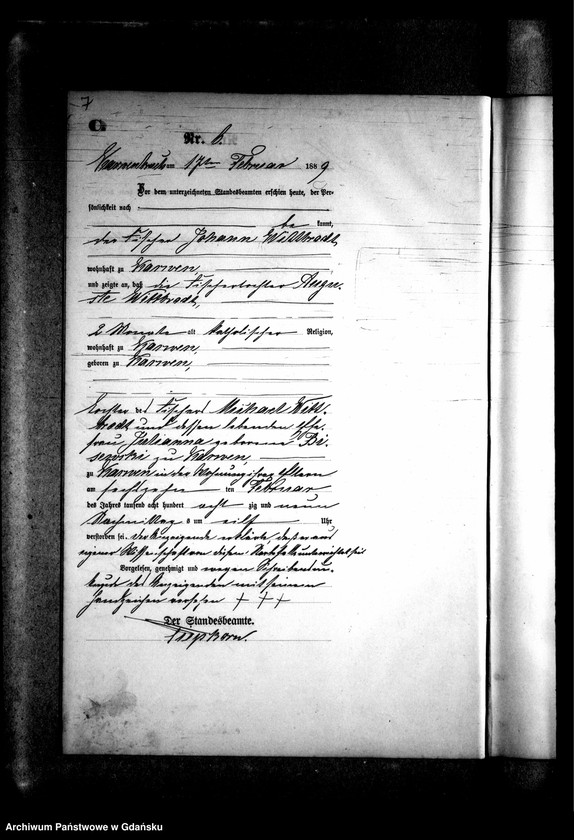 7
C
Nr. 6.
am 17ten Februar 1889
Vor dem unterzeichneten Standesbeamten erschien heute, der Per-
sönlichkeit nach
be kannt,
der Fischer Johann Wittbrodt,
wohnhaft zu Karwen,
und zeigte an, daß die Fischertochter Augu-
ste Wittbrodt,
2 Monate alt katholischer Religion,
wohnhaft zu Karwen,
geboren zu Karwen,
Tochter des Fischers Michael Witt-
brodt und dessen lebenden Ehe-
frau Julianna geborenen
zu Karwen,
zu Karwen in der Wohnung ihrer Eltern
am sechszehn ten Februar
des Jahres tausend acht hundert acht zig und neun
Nachmittags um eilf Uhr
verstorben sei. Der Anzeigende erklärte, daß er aus
eigener Wissenschaft von diesem Sterbefalle unterrichtet sei
Vorgelesen, genehmigt und wegen Schreibensun-
kunde des Anzeigenden mit seinem
Handzeichen versehen + + +
Der Standesbeamte.
Archiwum Państwowe w Gdańsku